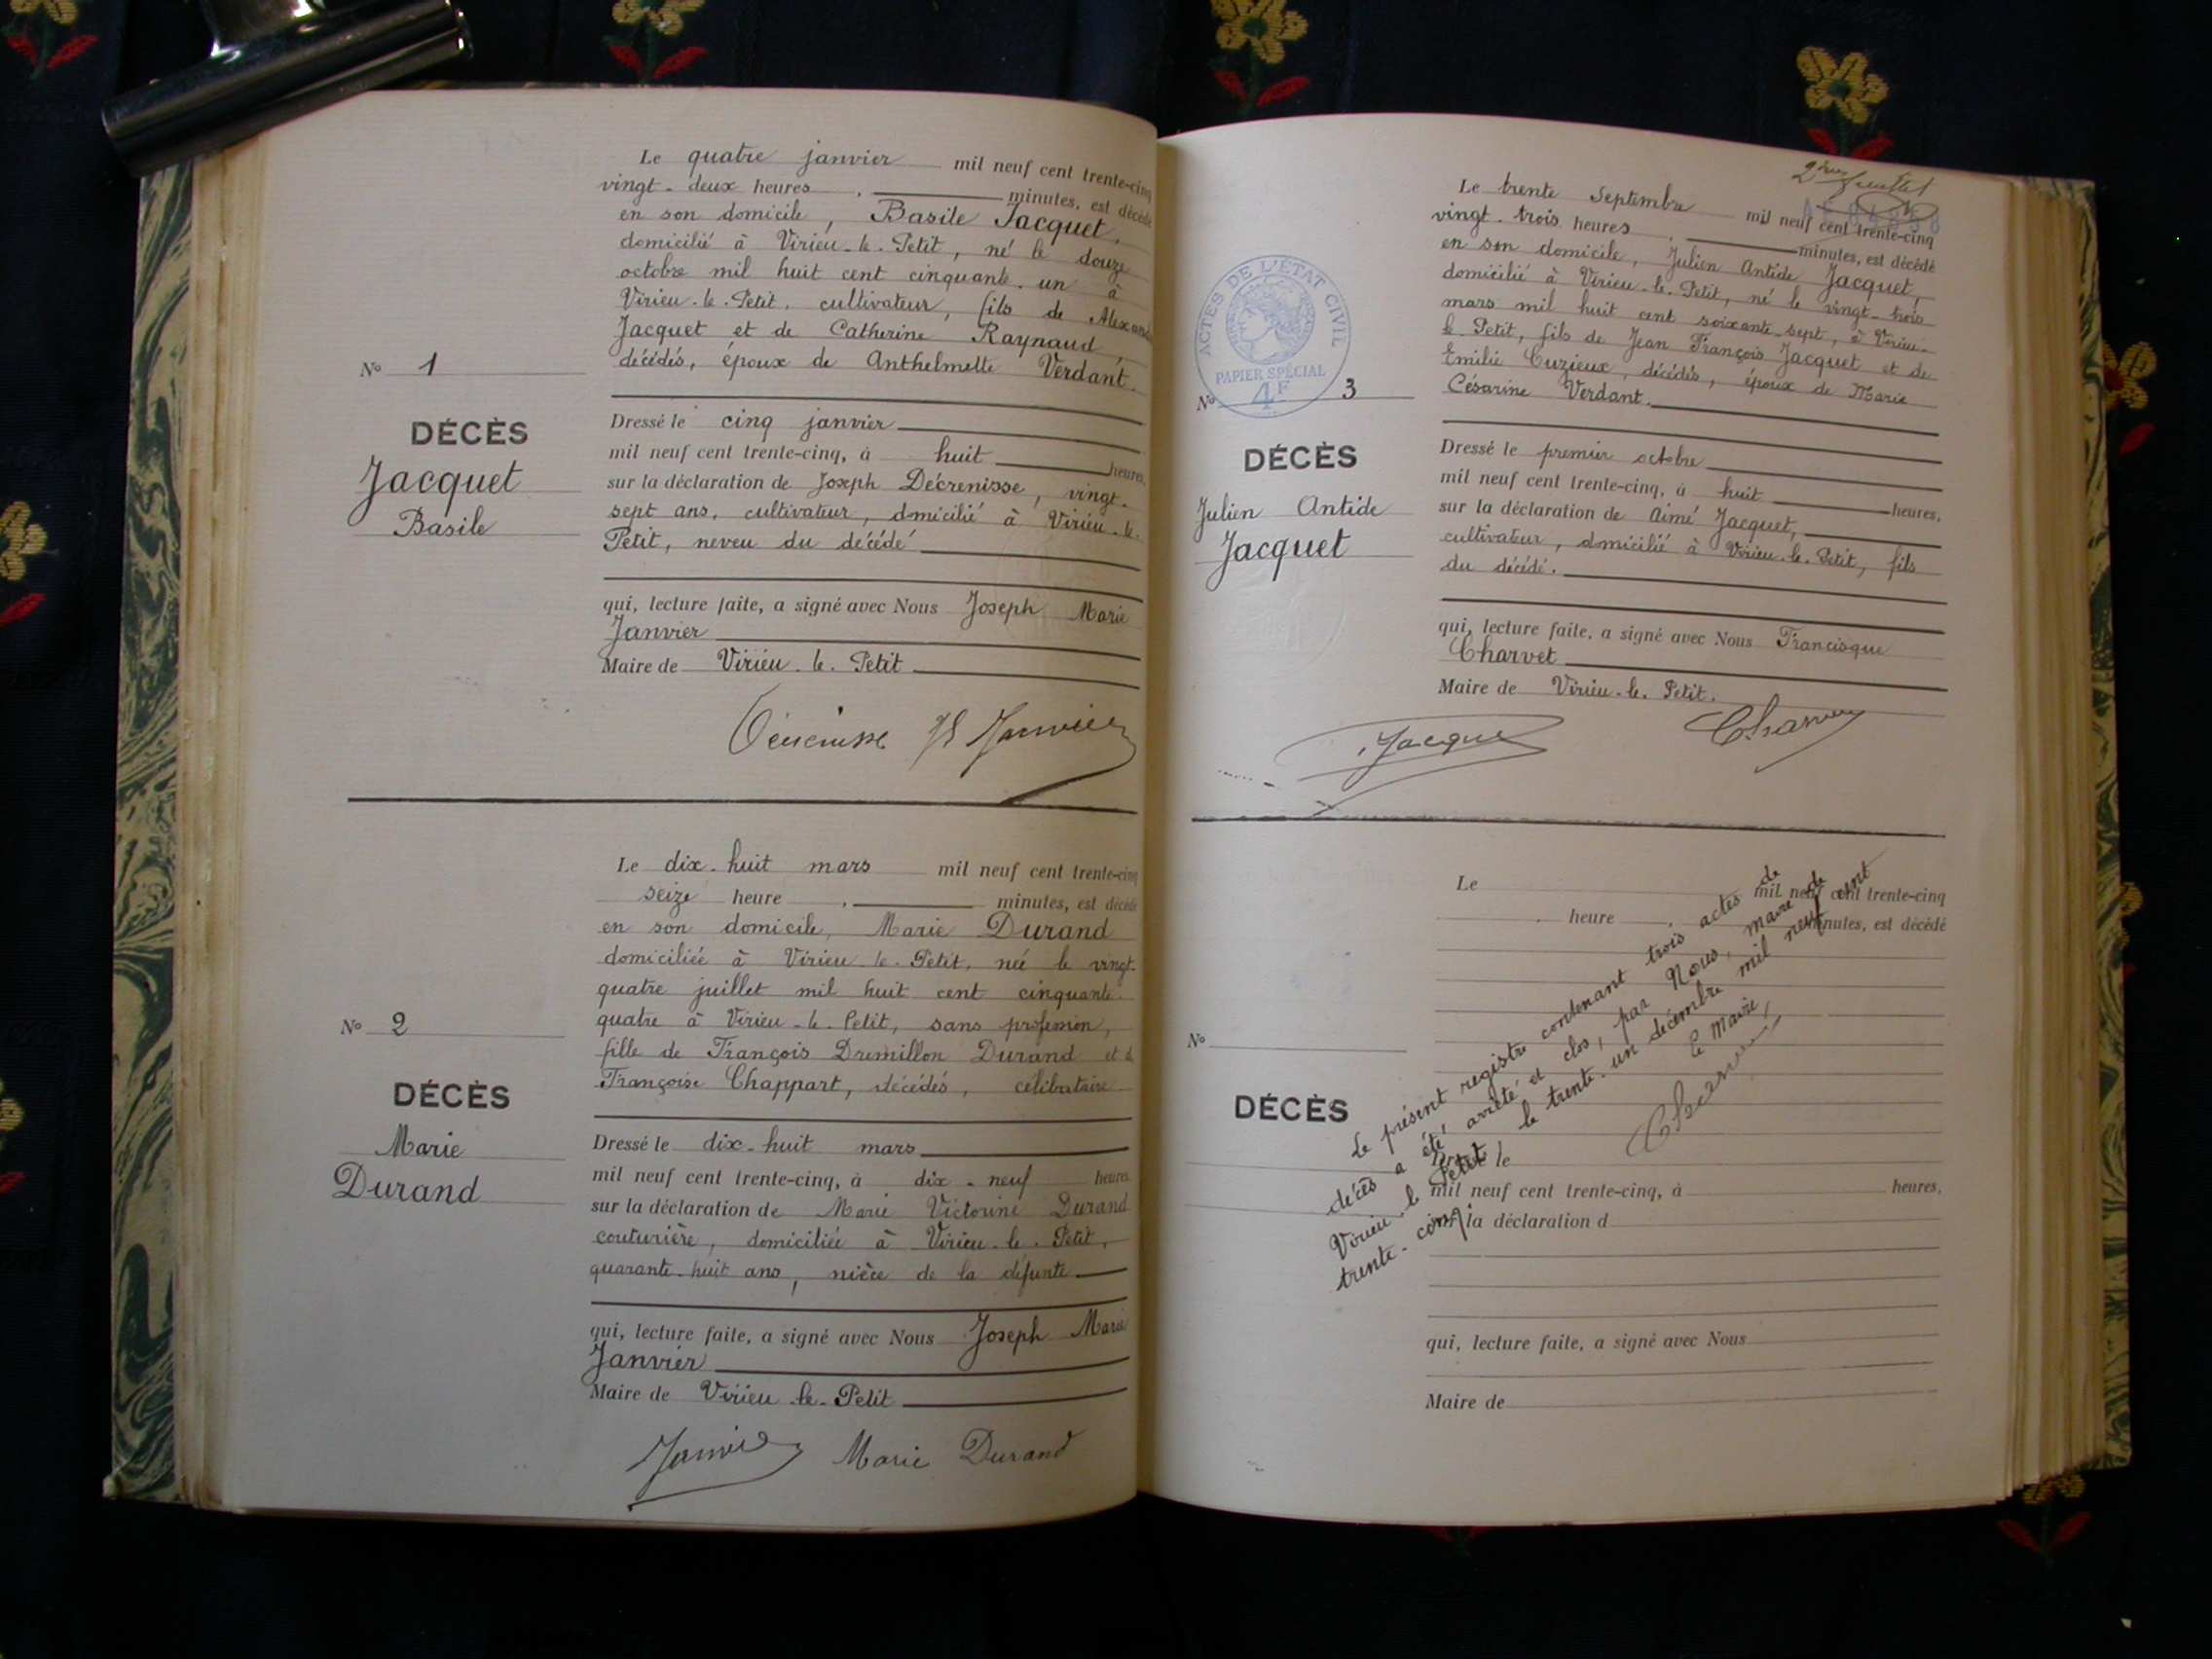 Le quatre janvier mil neuf cent trente-cinq
vingt-deux heures . minutes, est décédé
en son domicile, Basile Jacquet,
domicilié à Virieu-le-Petit, né le douze
octobre mil huit cent cinquante-un à
Virieu-le-Petit, cultivateur, fils de
Jacquet et de Catherine Raynaud,
décédés, époux de Anthelmette Verdant.
No 1
DÉCÈS
Jacquet
Basile
Dressé le cinq janvier
mil neuf cent trente-cinq, à huit heures,
sur la déclaration de Joseph Décrenisse, vingt-
sept ans, cultivateur, domicilié à Virieu-le-
Petit, neveu du décédé
qui, lecture faite, a signé avec Nous Joseph Marie
Janvier
Maire de Virieu-le-Petit
Janvier
Le dix-huit mars mil neuf cent trente-cinq
seize heure . minutes, est décédé
en son domicile, Marie Durand
domiciliée à Virieu-le-Petit, née le vingt-
quatre juillet mil huit cent cinquante-
quatre à Virieu-le-Petit, sans profession,
fille de François Dremillon Durand et de
Françoise Chappart, décédés, célibataire
No 2
DÉCÈS
Marie
Durand
Dressé le dix-huit mars
mil neuf cent trente-cinq, à dix-neuf heures
sur la déclaration de Marie Victorine Durand
couturière, domiciliée à Virieu-le-Petit,
quarante-huit ans, nièce de la défunte
qui, lecture faite, a signé avec Nous Joseph Marie
Janvier
Maire de Virieu-le-Petit
Janvier Marie Durand
Le trente Septembre mil neuf cent trente-cinq
vingt-trois heures . minutes, est décédé
en son domicile, Julien Antide Jacquet,
domicilié à Virieu-le-Petit, né le vingt-trois
mars mil huit cent soixante-sept, à Virieu-
le-Petit, fils de Jean François Jacquet et de
Emilie Cuzieux, décédés, époux de Marie
Césarine Verdant.
ACTES DE L'ÉTAT CIVIL
PAPIER SPÉCIAL
4F
No 3
DÉCÈS
Julien Antide
Jacquet
Dressé le premier octobre
mil neuf cent trente-cinq, à huit heures,
sur la déclaration de Aimé Jacquet,
cultivateur, domicilié à Virieu-le-Petit, fils
du décédé.
qui, lecture faite, a signé avec Nous Francisque
Charvet
Maire de Virieu-le-Petit.
Le mil neuf cent trente-cinq
heure . minutes, est décédé
No
DÉCÈS
Le présent registre contenant trois actes de
décès a été arrêté et clos, par Nous, maire de
Virieu-le-Petit le trente-un décembre mil neuf cent
trente-cinq.
le Maire,
Dressé le
mil neuf cent trente-cinq, à heures,
sur la déclaration d
qui, lecture faite, a signé avec Nous
Maire de